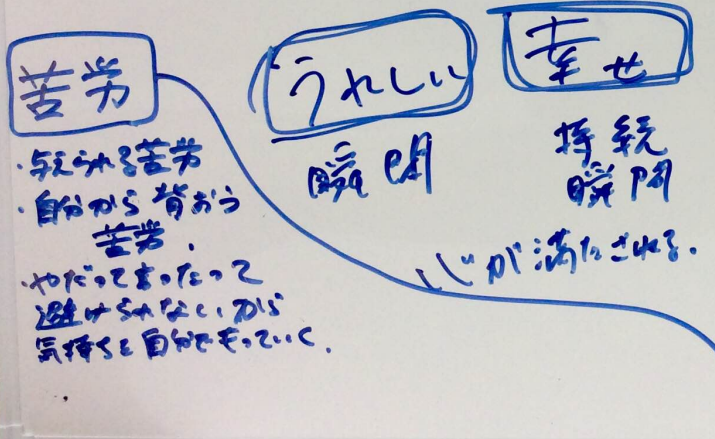 苦労
・与えられる苦労
・自分から背おう
苦労.
・やだって言ったって
避けられないから
気持ちを自分でもっていく.
うれしい
瞬間
幸せ
持続
瞬間
心が満たされる.